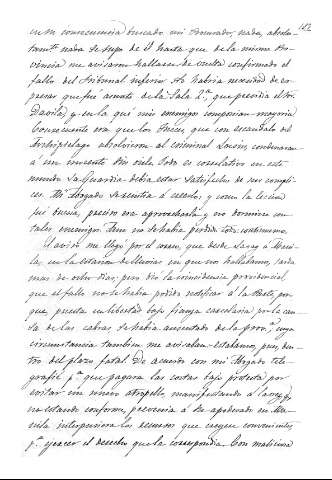 182
en su consecuencia buscado mi Procurador, nada, absolu-
tamte nada se supo de él hasta que de la misma Pro-
vincia me avisaron hallarse de vuelta confirmado el
fallo del Tribunal inferior. No habia necesidad de es-
perar que fué asunto de la Sala 2.ª, que presidia el Sor.
Davila, y en la que mis enemigos componian mayoria.
Consecuente era que los Jueces que con escandalo del
Archipielago absolvieron al criminal condenaran
a un inocente. Sin duda todo es correlativo en este
mundo. La Guardia debia estar satisfecha de sus complí-
ces. Mi Abogado se resistia á creerlos y como la leccion
fué buena, preciso era aprovecharla y no dormirse con
tales enemigos. Pero no se habia perdido todo, continuemos.
El aviso me llegó por el correo, que desde á Mani-
la, en la estacion de lluvias en que nos hallabamos, tarda
mas de ocho dias; pero dió la coincidencia providencial
que el fallo no se habia podido notificar á la Parte, por
que, puesta en libertad bajo fianza carcelaria por la cau-
sa de las cabras se habia ausentado de la prov.ª, cuya
circunstancia tambien me avisaban. Estabamos, pues, den-
tro del plazo fatal. De acuerdo con mi Abogado tele-
grafié p.ª que pagaran las costas bajo protesta por
evitar un nuevo atropello, manifestando á la vez q.
no estando conforme, prevenia á su apoderado en Ma-
nila interpusiera los recursos que creyese convenientes
p.ª ejercer el derecho que la correspondia. Con maliciosa